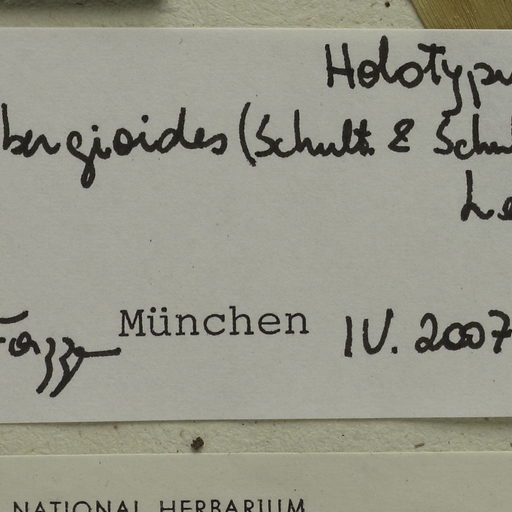 Holotypu
bergioides (Schult. & Schul
Le
München IV. 2007
NATIONAL HERBARIUM